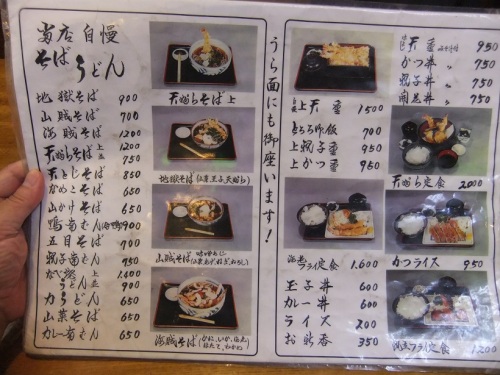 当店自慢
そば
うどん
地獄そば 900
山賊そば 700
海賊そば 1200
天ぷらそば 上 1200
並 750
天とじそば 850
かめこそば 650
山かけそば 650
鴨南ばん 900
五目そば 700
親子南ばん 750
なべ焼うどん 上 1,400
並 900
力うどん 650
山菜そば 650
カレー南ばん 650
天ぷらそば 上
地獄そば(仙台玉子天ぷら)
山賊そば
海賊そば(かに、いか、
ほたて、わかめ)
うら面にも御座います!
天重 950
かつ丼 〃 750
親子丼 〃 750
開花丼 〃 750
上天重 1500
とろろ御飯 700
上親子重 950
上かつ重 950
天ぷら定食 2000
海老フライ定食 1,600
かつライス 950
玉子丼 600
カレー丼 600
ライス 200
お新香 350
フライ定食 1200